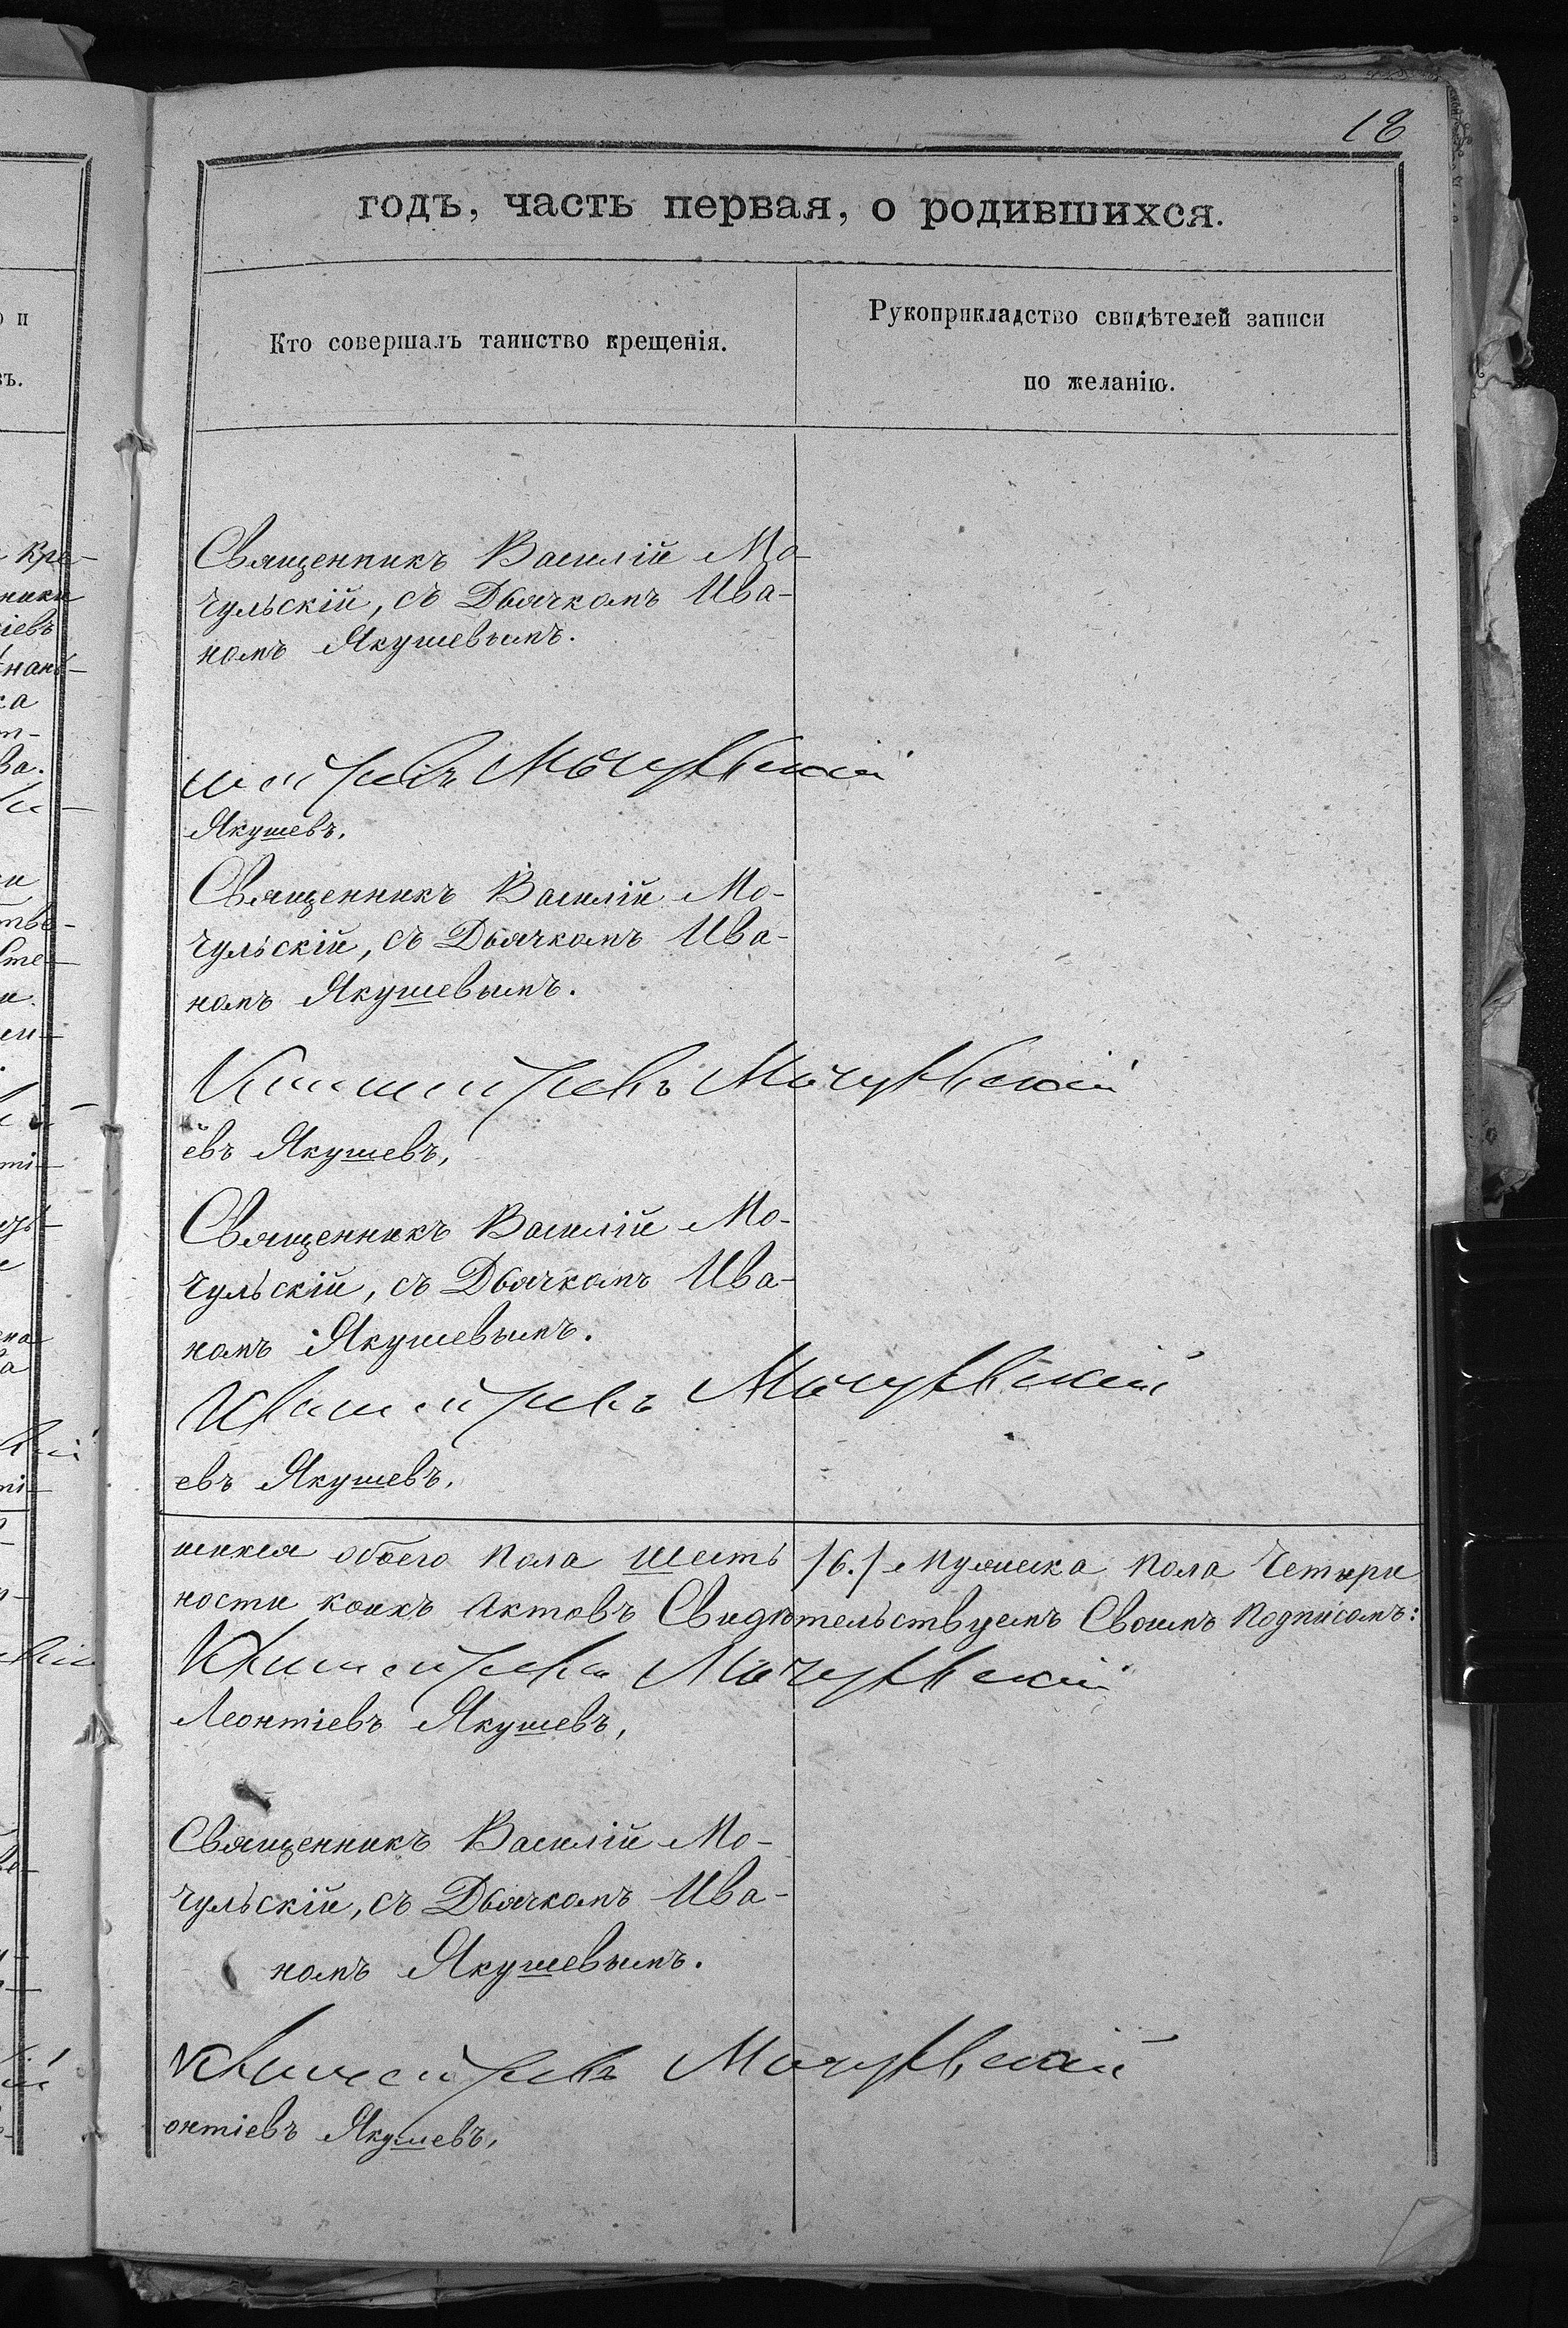 18
годъ, часть первая, о родившихся.
Кто совершалъ таинство крещенія.
Рукоприкладство свидѣтелей записи
по желанію.
Священникъ Василій Мо-
чульскій, съ Дьячкомъ Ива-
номъ Якушевымъ.
Мочульскій
Якушевъ.
Священникъ Василій Мо-
чульскій, съ Дьячкомъ Ива-
номъ Якушевымъ.
Мочульскій
евъ Якушевъ,
Священникъ Василій Мо-
чульскій, съ Дьячкомъ Ива-
номъ Якушевымъ.
Мочульскій
евъ Якушевъ,
шихся обоего пола шесть /6./ Мужеска пола Четыри
ности коихъ Актовъ Свидѣтельствуемъ Своимъ подписомъ:
Мочульскій
Леонтіевъ Якушевъ,
Священникъ Василій Мо-
чульскій, съ Дьячкомъ Ива-
номъ Якушевымъ.
Мочульскій
онтіевъ Якушевъ,